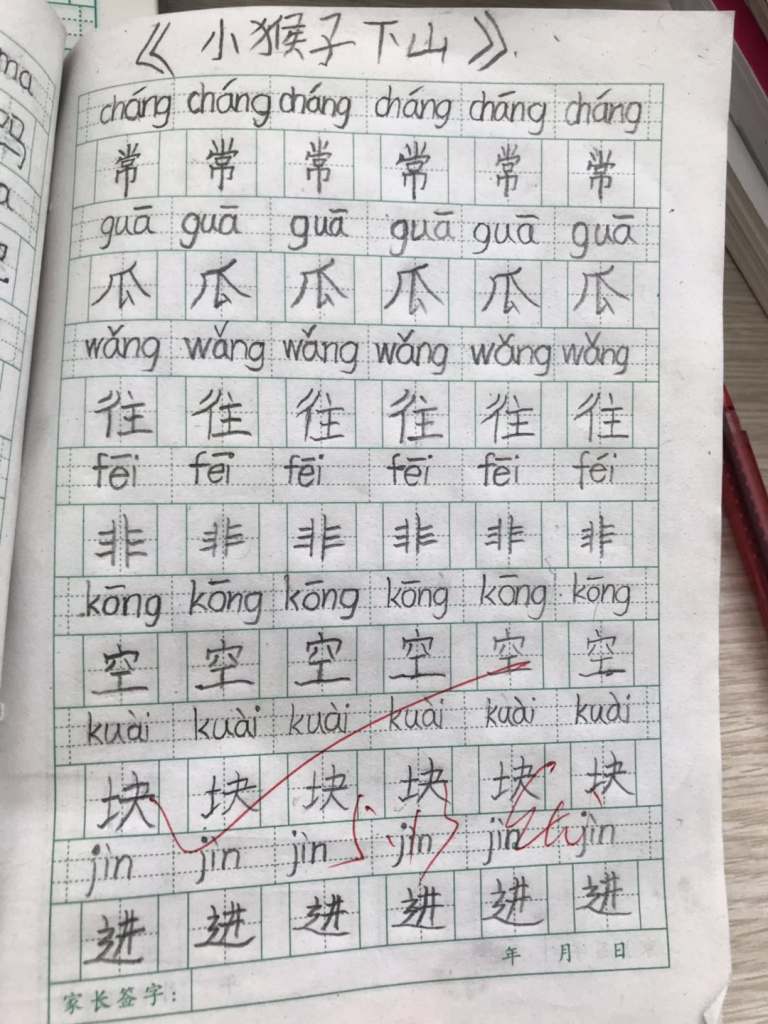 《小猴子下山》
cháng cháng cháng cháng cháng cháng
常 常 常 常 常 常
guā guā guā guā guā guā
瓜 瓜 瓜 瓜 瓜 瓜
wǎng wǎng wǎng wǎng wǎng wǎng
往 往 往 往 往 往
fēi fēi fēi fēi fēi féi
非 非 非 非 非 非
kōng kōng kōng kōng kōng kōng
空 空 空 空 空 空
kuài kuài kuài kuài kuài kuài
块 块 块 块 块 块
jìn jìn jìn jìn jìn jìn
进 进 进 进 进 进
年 月 日
家长签字: